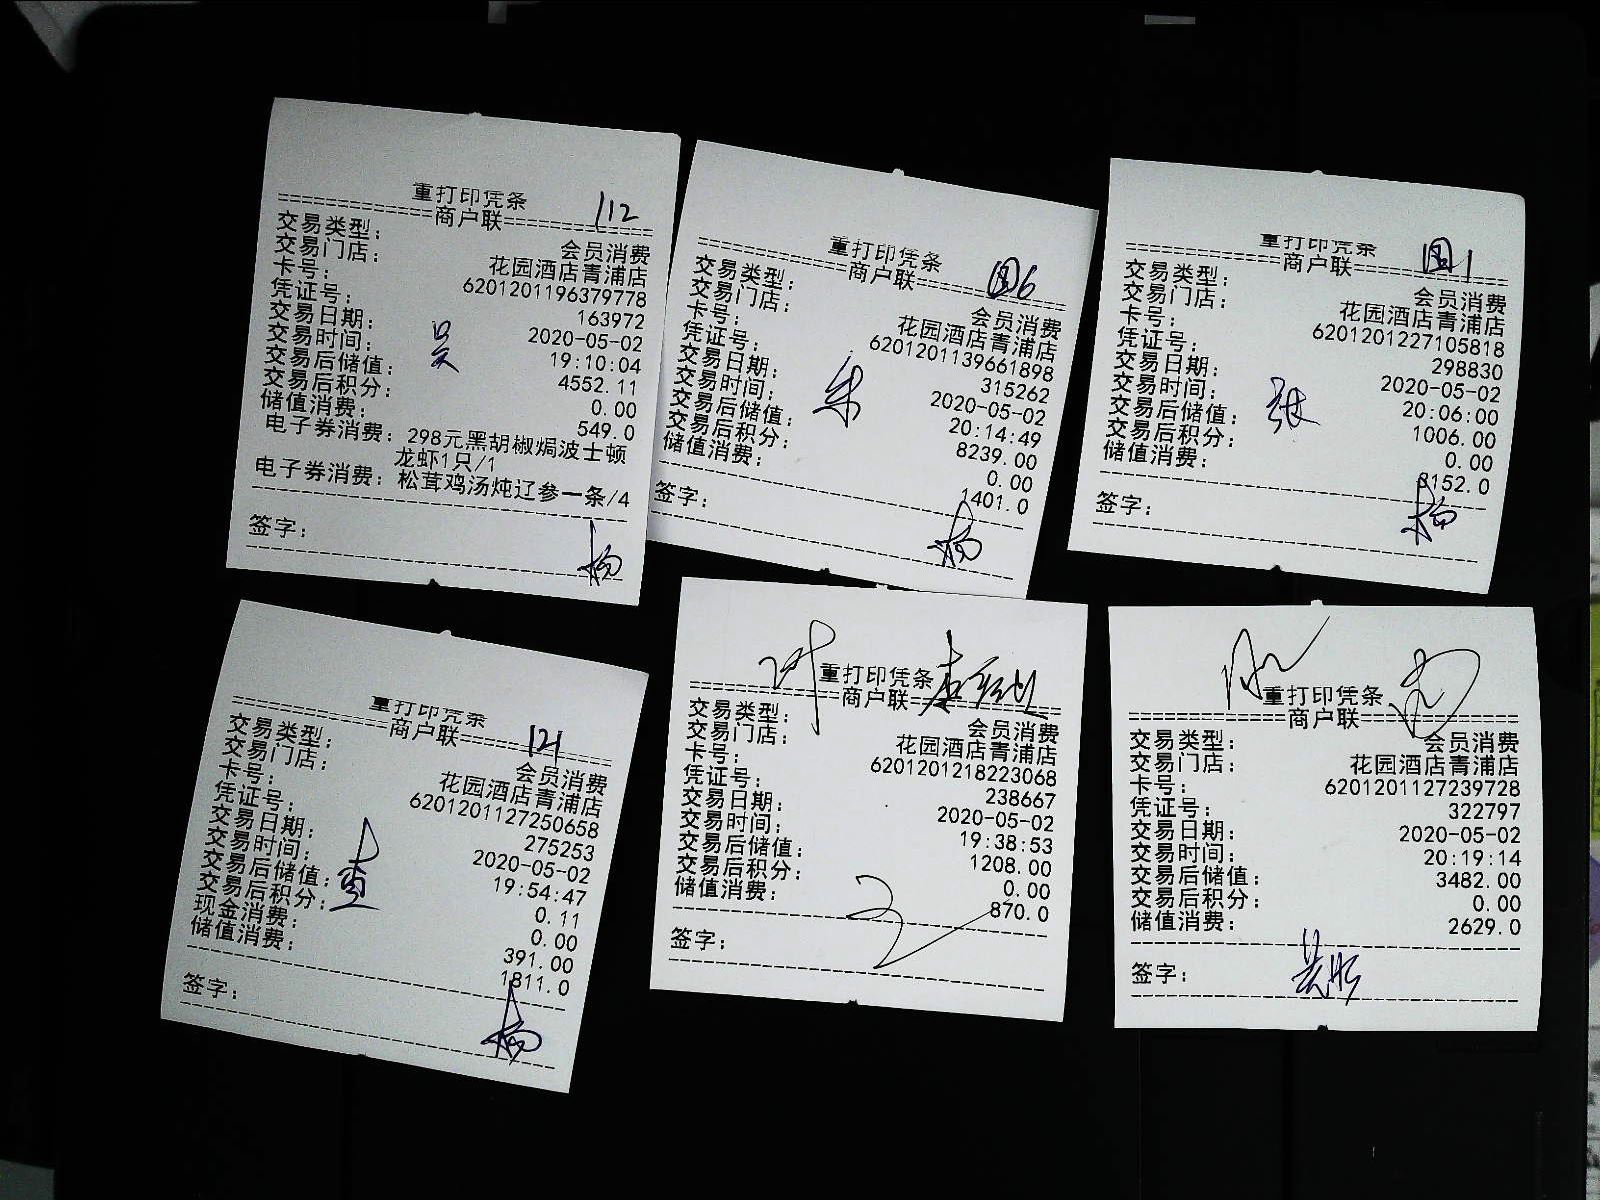 重打印凭条
112
==============商户联==============
交易类型: 会员消费
交易门店: 花园酒店青浦店
卡号: 6201201196379778
凭证号: 163972
交易日期: 2020-05-02
交易时间: 19:10:04
吴
交易后储值: 4552.11
交易后积分: 0.00
储值消费: 549.0
电子券消费: 298元黑胡椒焗波士顿
龙虾1只/1
电子券消费: 松茸鸡汤炖辽参一条/4
签字:
杨
重打印凭条
圆6
==============商户联==============
交易类型: 会员消费
交易门店: 花园酒店青浦店
卡号: 6201201139661898
凭证号: 315262
交易日期: 2020-05-02
交易时间: 20:14:49
朱
交易后储值: 8239.00
交易后积分: 0.00
储值消费: 1401.0
签字:
杨
重打印凭条
圆1
==============商户联==============
交易类型: 会员消费
交易门店: 花园酒店青浦店
卡号: 6201201227105818
凭证号: 298830
交易日期: 2020-05-02
交易时间: 20:06:00
张
交易后储值: 1006.00
交易后积分: 0.00
储值消费: 3152.0
签字:
杨
重打印凭条
121
==============商户联==============
交易类型: 会员消费
交易门店: 花园酒店青浦店
卡号: 6201201127250658
凭证号: 275253
交易日期: 2020-05-02
交易时间: 19:54:47
交易后储值: 0.11
交易后积分: 0.00
现金消费: 391.00
储值消费: 1811.0
签字:
杨
重打印凭条
==============商户联==============
交易类型: 会员消费
交易门店: 花园酒店青浦店
卡号: 6201201218223068
凭证号: 238667
交易日期: 2020-05-02
交易时间: 19:38:53
交易后储值: 1208.00
交易后积分: 0.00
储值消费: 870.0
签字:
重打印凭条
==============商户联==============
交易类型: 会员消费
交易门店: 花园酒店青浦店
卡号: 6201201127239728
凭证号: 322797
交易日期: 2020-05-02
交易时间: 20:19:14
交易后储值: 3482.00
交易后积分: 0.00
储值消费: 2629.0
签字: